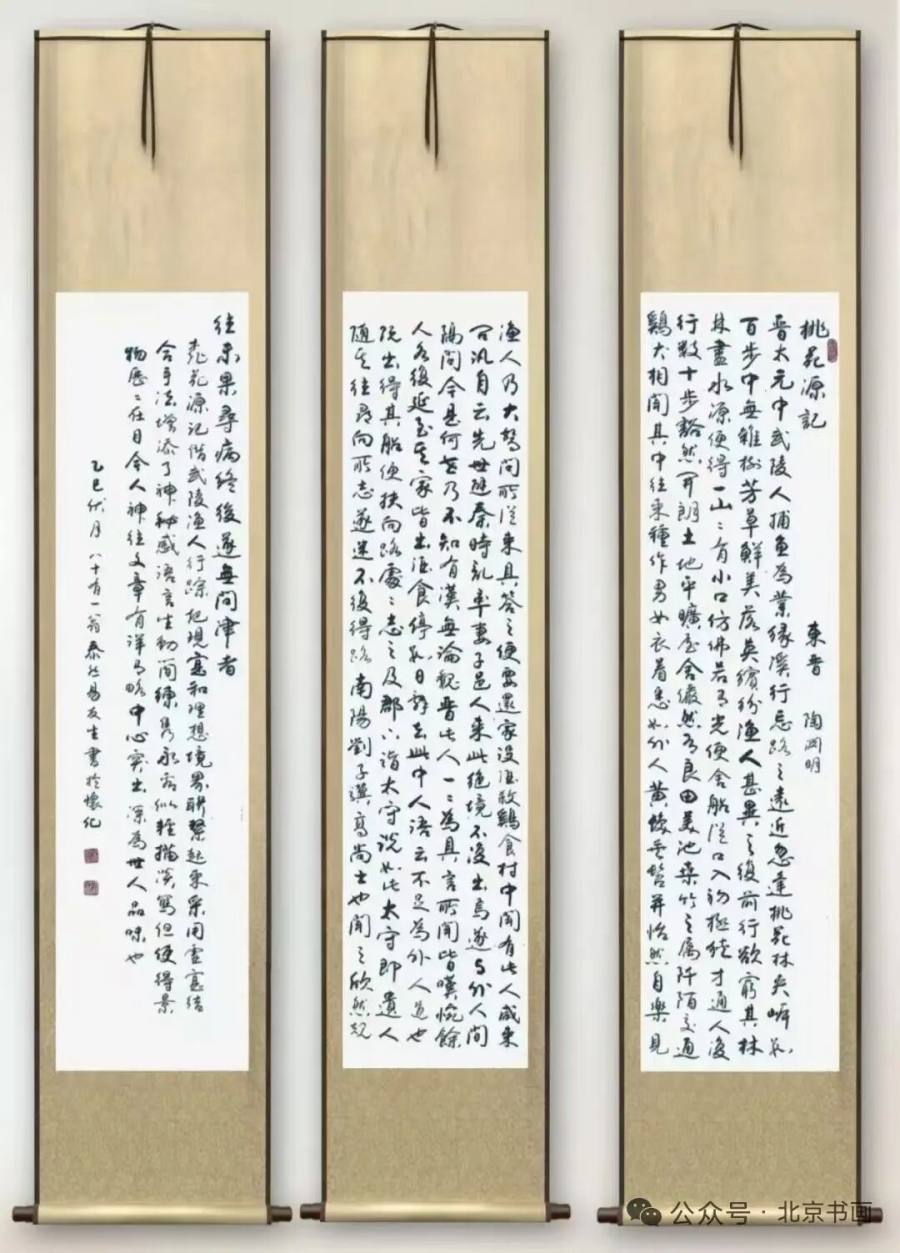 桃花源記 東晋 陶渊明
晋太元中武陵人捕魚為業緣溪行忘路之遠近忽逢桃花林夾岸数
百步中無雜樹芳草鮮美落英繽紛漁人甚異之復前行欲窮其林
林盡水源便得一山々有小口仿佛若有光便舍船從口入初極狹才通人復
行數十步豁然開朗土地平曠屋舍儼然有良田美池桑竹之屬阡陌交通
鷄犬相聞其中往來種作男女衣着悉如外人黄髪垂髫并怡然自樂見
漁人乃大驚問所從來具答之便要還家設酒殺鷄食村中聞有此人咸來
問訊自云先世避秦時乱率妻子邑人來此絶境不復出焉遂与外人間
隔問今是何世乃不知有漢無論魏晋此人一々為具言所聞皆嘆惋餘
人各復延至其家皆出酒食停数日辞去此中人語云不足為外人道也
既出得其船便扶向路處々志之及郡下詣太守説如此太守即遣人
隨其往尋向所志遂迷不復得路南陽劉子驥高尚士也聞之欣然規
往未果尋病終後遂無問津者
桃花源記借武陵漁人行踪把現實和理想境界聯繫起來采用虚實結
合手法增添了神秘感語言生動簡練隽永看似輕描淡寫但使得景
物歷々在目令人神往文章有詳有略中心突出深為世人品味也
乙巳伏月八十有一翁泰然易友生書於懷化
公众号·北京书画